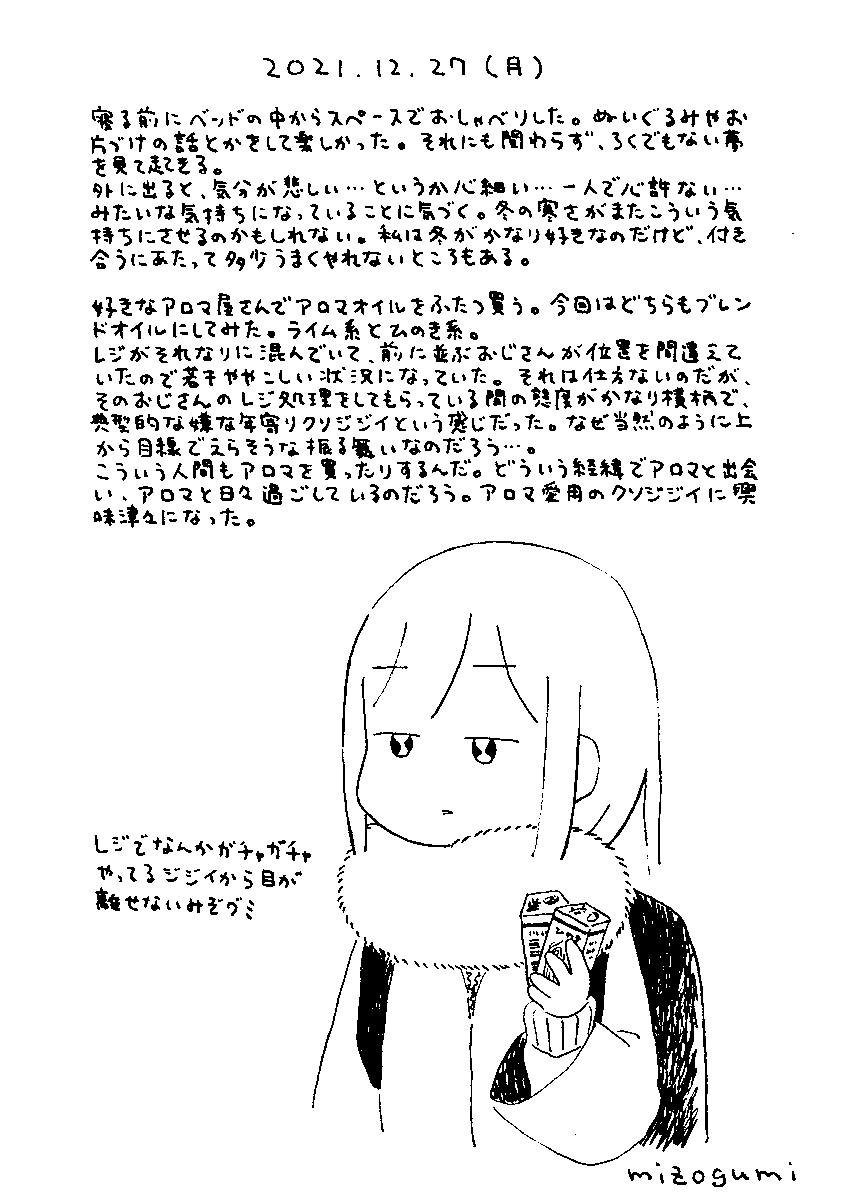 2021.12.27(月)
寝る前にベッドの中からスペースでおしゃべりした。ぬいぐるみやお
片づけの話とかをして楽しかった。それにも関わらず、ろくでもない夢
を見て起きる。
外に出ると、気分が悲しい…というか心細い…一人で心許ない…
みたいな気持ちになっていることに気づく。冬の寒さがまたこういう気
持ちにさせるのかもしれない。私は冬がかなり好きなのだけど、付き
合うにあたって多少うまくやれないところもある。
好きなアロマ屋さんでアロマオイルをふたつ買う。今回はどちらもブレン
ドオイルにしてみた。ライム系とひのき系。
レジがそれなりに混んでいて、前に並ぶおじさんが位置を間違えて
いたので若干ややこしい状況になっていた。それは仕方ないのだが、
そのおじさんのレジ処理をしてもらっている間の態度がかなり横柄で、
典型的な嫌な年寄りクソジジイという感じだった。なぜ当然のように上
から目線でえらそうな振る舞いなのだろう…。
こういう人間もアロマを買ったりするんだ。どういう経緯でアロマと出会
い、アロマと日々過ごしているのだろう。アロマ愛用のクソジジイに興
味津々になった。
レジでなんかガチャガチャ
やってるジジイから目が
離せないみぞグミ
mizogumi